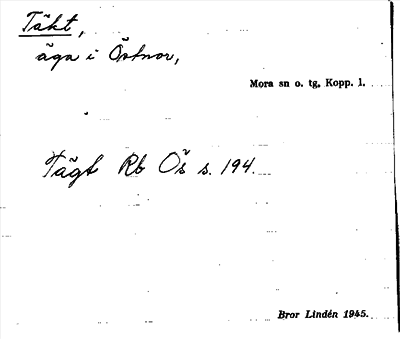 Täkt,
äga i Östnor,
Mora sn o. tg. Kopp. l.
Tägt Rb Ös s. 194.
Bror Lindén 1945.